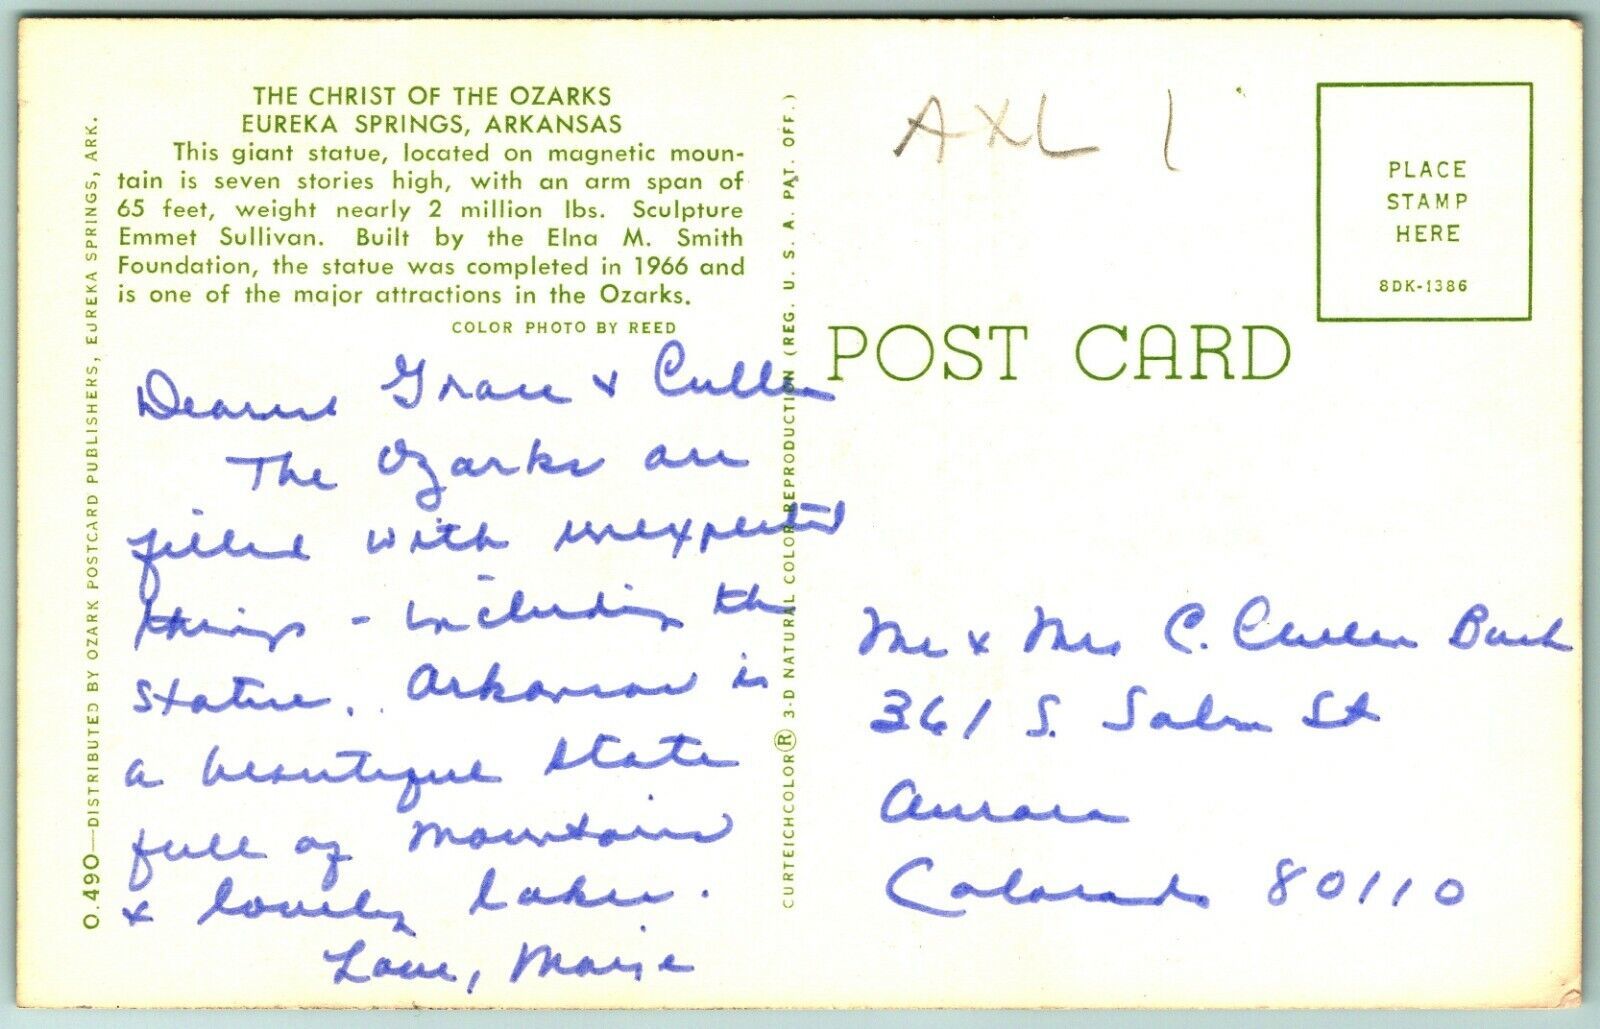 THE CHRIST OF THE OZARKS
EUREKA SPRINGS, ARKANSAS
This giant statue, located on magnetic moun-
tain is seven stories high, with an arm span of
65 feet, weight nearly 2 million lbs. Sculpture
Emmet Sullivan. Built by the Elna M. Smith
Foundation, the statue was completed in 1966 and
is one of the major attractions in the Ozarks.
COLOR PHOTO BY REED
O.490—DISTRIBUTED BY OZARK POSTCARD PUBLISHERS, EUREKA SPRINGS, ARK.
Dearest Grace & Cullen
The Ozarks are
filled with unexpected
things - including the
statue. Arkansas is
a beautiful state
full of mountains
& lovely lakes.
Love, Marge
CURTEICHCOLOR® 3-D NATURAL COLOR REPRODUCTION (REG. U. S. A. PAT. OFF.)
AXL 1
PLACE
STAMP
HERE
8DK-1386
POST CARD
Mr & Mrs C. Cullen
361 S. Salem St
Aurora
Colorado 80110